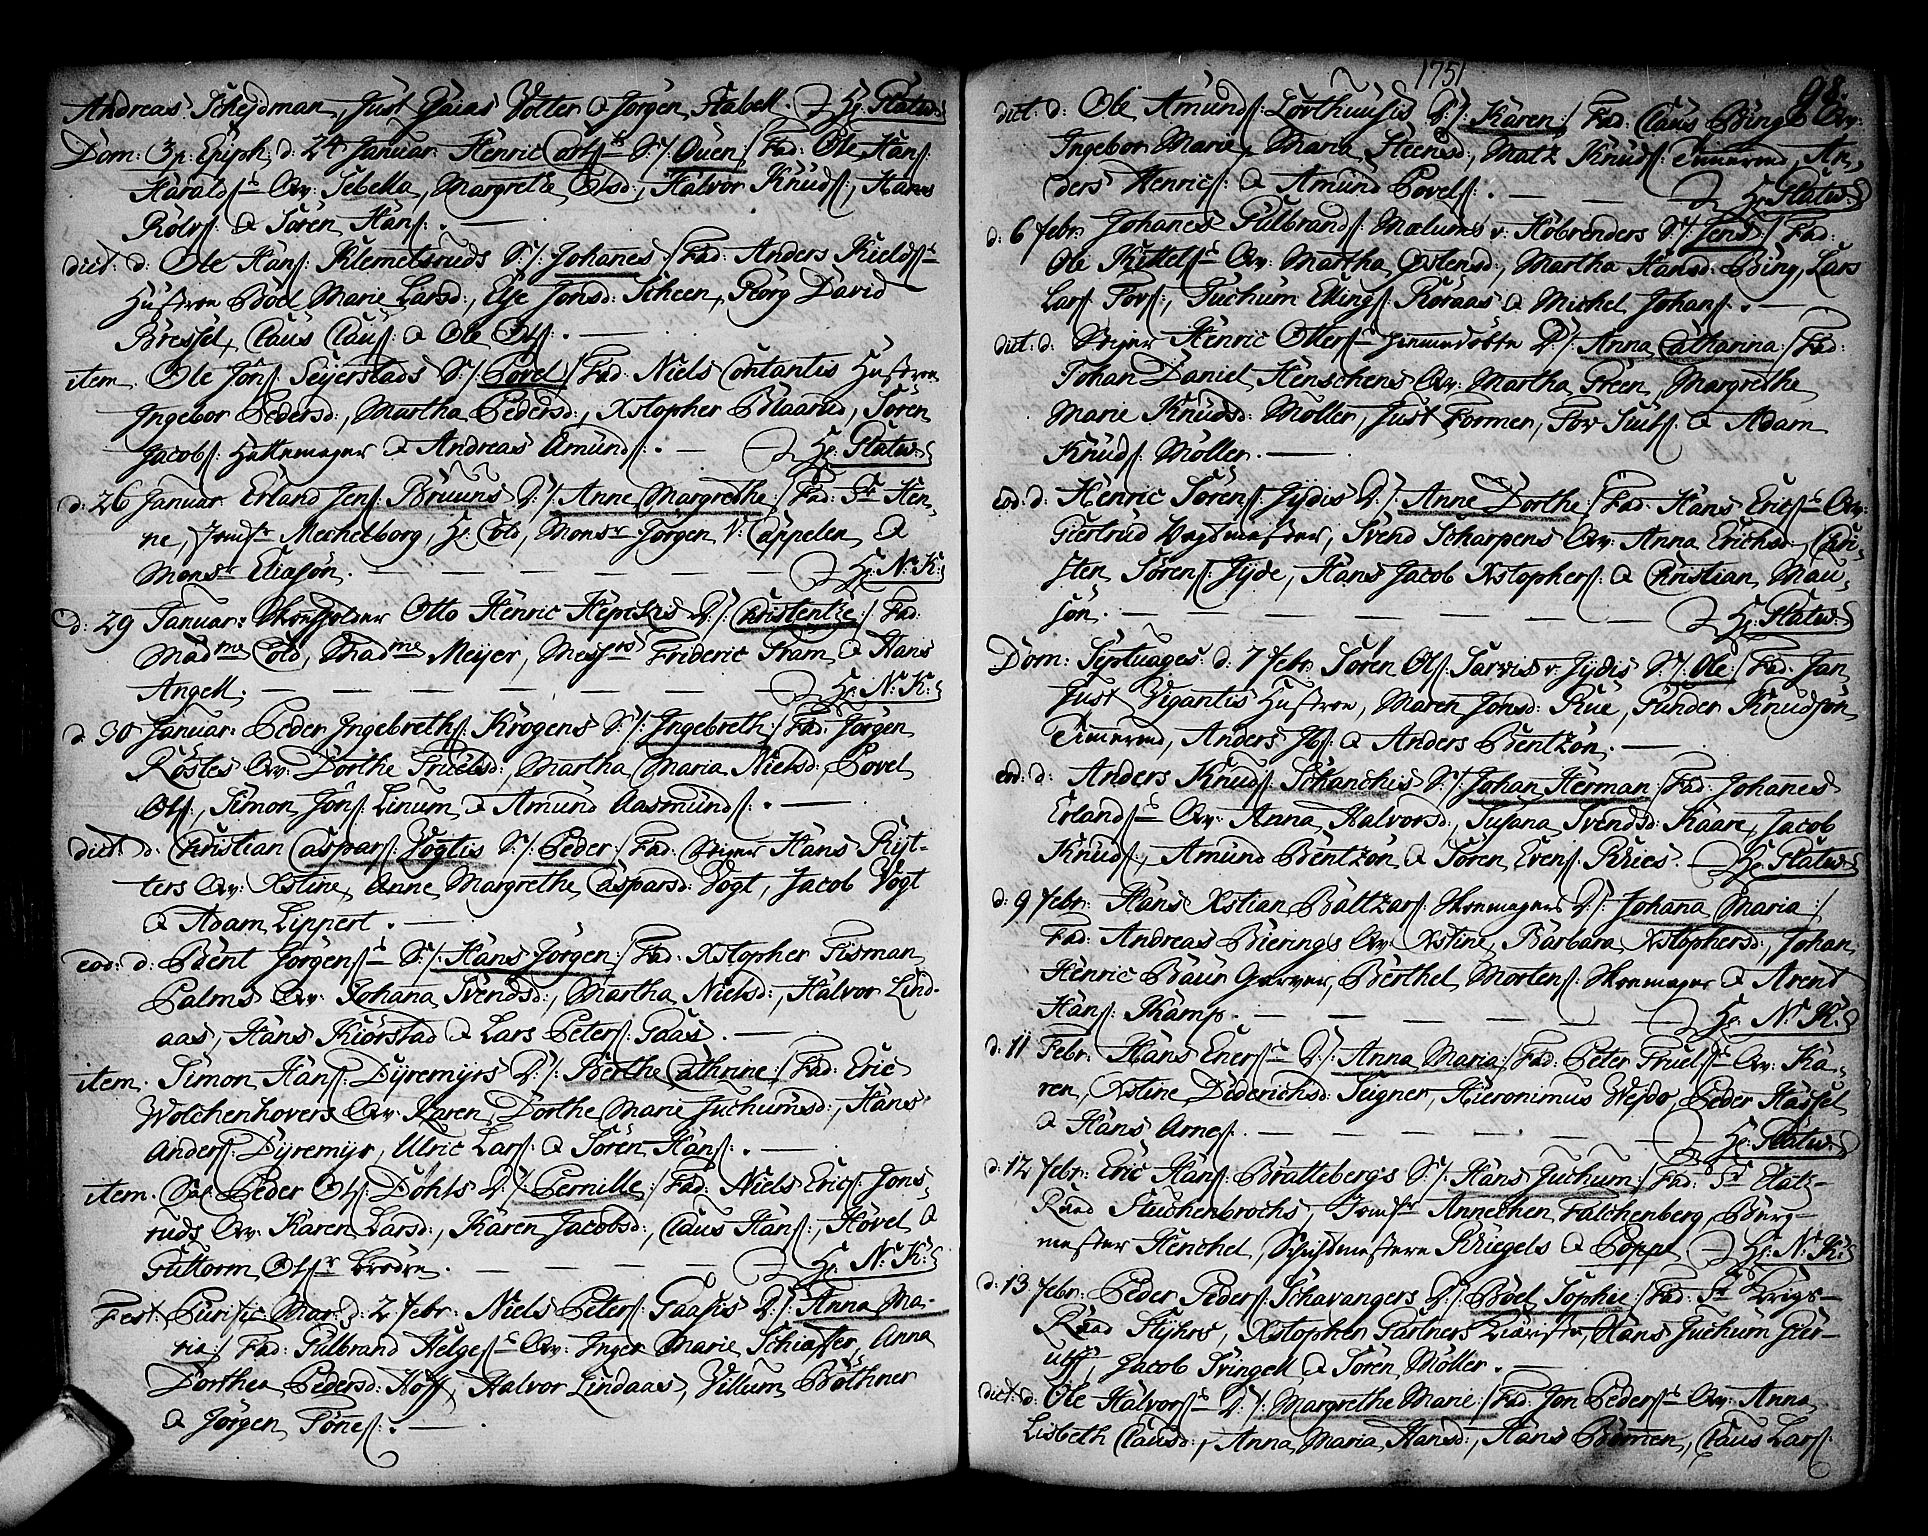 Andreas Schejdman, Just Gaias Votter & Jørgen Stabell. Hr. Platou:
Dom: 3 p: Epiph: d: 24 Januar Henric S:/: Ouen:/ Fad: Ole Hans:
Haralds: Qv: Sebella, Margrethe Olsd:, Halvor Knuds:, Hans
Rolvs: & Søren Hans:. —
dict: d: Ole Hans: Klemetsruds S:/: Johanes:/ Fad: Anders Kields:
Hustroe Boel Marie Larsd:, Else Jonsd: Scheen, Georg David
Bressel, Claus Claus: & Ole Ols:. —
item. Ole Jons: Sejerstads S:/: Povel:/ Fad: Niels Contantis Hustroe
Ingebor Pedersd:, Martha Pedersd:, Xstopher Blaarud, Søren
Jacobs: Hattemager & Andreas Amunds:. — Hr. Platou:
d: 26 Januar Erland Jens: Bruuns D:/: Anne Margrethe:/ Fad: Fr Hen-
ne, Jomfr Mechelborg, Hr. Cold, Monsr Jørgen V: Cappelen, &
Monsr Eliasøn. — — — — — Hr. N: K:
d: 29 Januar: Otto Henric D:/: Christentze:/ Fad:
Madme Cold, Madme Meyer, Messrs Frideric Tram & Hans
Angell. — — — — — Hr. N: K:
d: 30 Januar: Peder Ingebreths: Krogens S:/: Ingebreth:/ Fad: Jørgen
Røstes Qv: Dorthe Truelsd:, Martha Maria Nielsd:, Povel
Ols:, Simon Jons: Linum & Amund Aasmunds:. —
dict: d: Christian Caspars: Vogtis S:/: Peder:/ Fad: Hans Ryt-
ters Qv: Xstine, Anne Margrethe Caspersd: Vogt, Jacob Vogt
& Adam Lippert. —
eod: d: Bent Jørgens: S:/: Hans Jørgen:/ Fad: Xstopher Fisman
Palms Qv: Johana Svendsd:, Martha Nielsd:, Halvor Lind-
aas, Hans Kiørstad & Lars Peters: Gaas. —
item. Simon Hans: Dyremyrs D:/: Berthe Cathrine:/ Fad: Eric
Wolchenhovers Qv: Karen, Dorthe Marie Juchumsd:, Hans
Anders: Dyremyr, Ulric Lars: & Søren Hans:. —
item. Peder Ols: Dohls D:/: Pernille:/ Fad: Niels Erics: Jons-
ruds Qv: Karen Larsd:, Karen Jacobsd:, Claus Hans:, Hovel &
Guttorm Ols: Brødre. — — — — Hr. N: K:
Fest: Purific: Mar: d: 2 febr: Niels Peters: Gaasis D:/: Anna Ma-
ria:/ Fad: Gulbrand Helges: Qv: Inger Marie Schiøtter, Anna
Dorthea Pedersd: Hoff, Halvor Lindaas, Villum Bøthner
& Jørgen Tønes:. —
1751
98.
dict: d: Ole Amunds: Lorthuusis D:/: Karen:/ Fad: Claus Bings Qv:
Ingebor Marie, Maria Steensd:, Matz Knuds: Timermd, An-
ders Henrics: & Amund Povels:. — — — Hr. Platou:
d: 6 febr: Johanes Gulbrands: Mælums v: Høbrenders S:/: Jens:/ Fad:
Ole Kittels: Qv: Martha Ostensd:, Martha Hansd: Bing, Lars
Lars: Fors:, Juchum Ellings: Roraas & Michel Johans:. —
dict: d: Henric Otters: hiemedøbte D:/: Anna Catharina:/ Fad:
Johan Daniel Henschens Qv: Martha Preen, Margrethe
Marie Knudsd: Møller, Just Former, Tov Juls: & Adam
Knuds: Møller. —
eod: d: Henric Sørens: Jydis D:/: Anne Dorthe:/ Fad: Hans Erics: Qv:
Giertrud Vegtmester, Svend Scharpens Qv: Anna Erichsd:, Chri-
sten Sørens: Jyde, Hans Jacob Xstophers: & Christian Mau-
søn. — — — — — Hr. Platou:
Dom: Septuages: d: 7 febr: Søren Ols: Sarvis v: Jydis S:/: Ole:/ Fad: Jan
Just Vigantis Hustroe, Maren Jonsd: Rue, Gunder Knudsøn
Timermd, Anders Ibs: & Anders Bentzøn. —
eod: d: Anders Knuds: Schanchis S:/: Johan Herman:/ Fad: Johanes
Erlands: Qv: Anna Halvorsd:, Susana Svendsd: Kaare, Jacob
Knuds:, Amund Bentzøn & Søren Evens: Kries. — Hr. Platou:
d: 9 febr: Hans Xstian Baltzars: Skoemagers D:/: Johana Maria:/
Fad: Andreas Bierings Qv: Xstine, Barbara Xstophersd:, Johan
Henric Baur Garver, Berthel Mortens: Skoemager & Arent
Hans: Kamp. — — — — — Hr. N: K:
d: 11 Febr: Hans Eners: D:/: Anna Maria:/ Fad: Peter Truels: Qv: Ka-
ren, Xstine Dederichsd: Seigner, Hieronimus Wesdo, Peder Hassel
& Hans Arnes:. — — — — — Hr. Platou:
d: 12 febr: Eric Hans: Brattebergs S:/: Hans Juchum:/ Fad: Fr Etatz-
Raad Stuchenbrochs, Jomfr Annechen Falchenberg, Bürg-
mester Henchel, Schichtmestere Kriegels & Poppe Hr. N: K:
d: 13 febr: Peder Peders: Schavangers D:/: Boel Sophie:/ Fad: Fr Krigs-
Raad Flyhrs, Xstopher Gartners Hans Juchum Gier-
ulff, Jacob Svingell & Søren Møller. —
dict: d: Ole Halvors: D:/: Margrethe Marie:/ Fad: Jon Peders: Qv: Anna
Lisbeth Clausd:, Anna Maria Hansd:, Hans Bømen, Claus Lars: